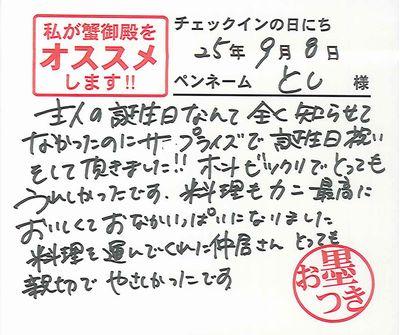 私が蟹御殿を
オススメ
します!!
チェックインの日にち
25年9月8日
ペンネーム とし 様
主人の誕生日なんて全く知らせて
なかったのにサープライズで誕生日祝い
をして頂きました!! ホントビックリでとっても
うれしかったです。料理もカニ最高に
おいしくておなかいっぱいになりました
料理を運んでくれた仲居さんとっても
親切でやさしかったです
お墨つき